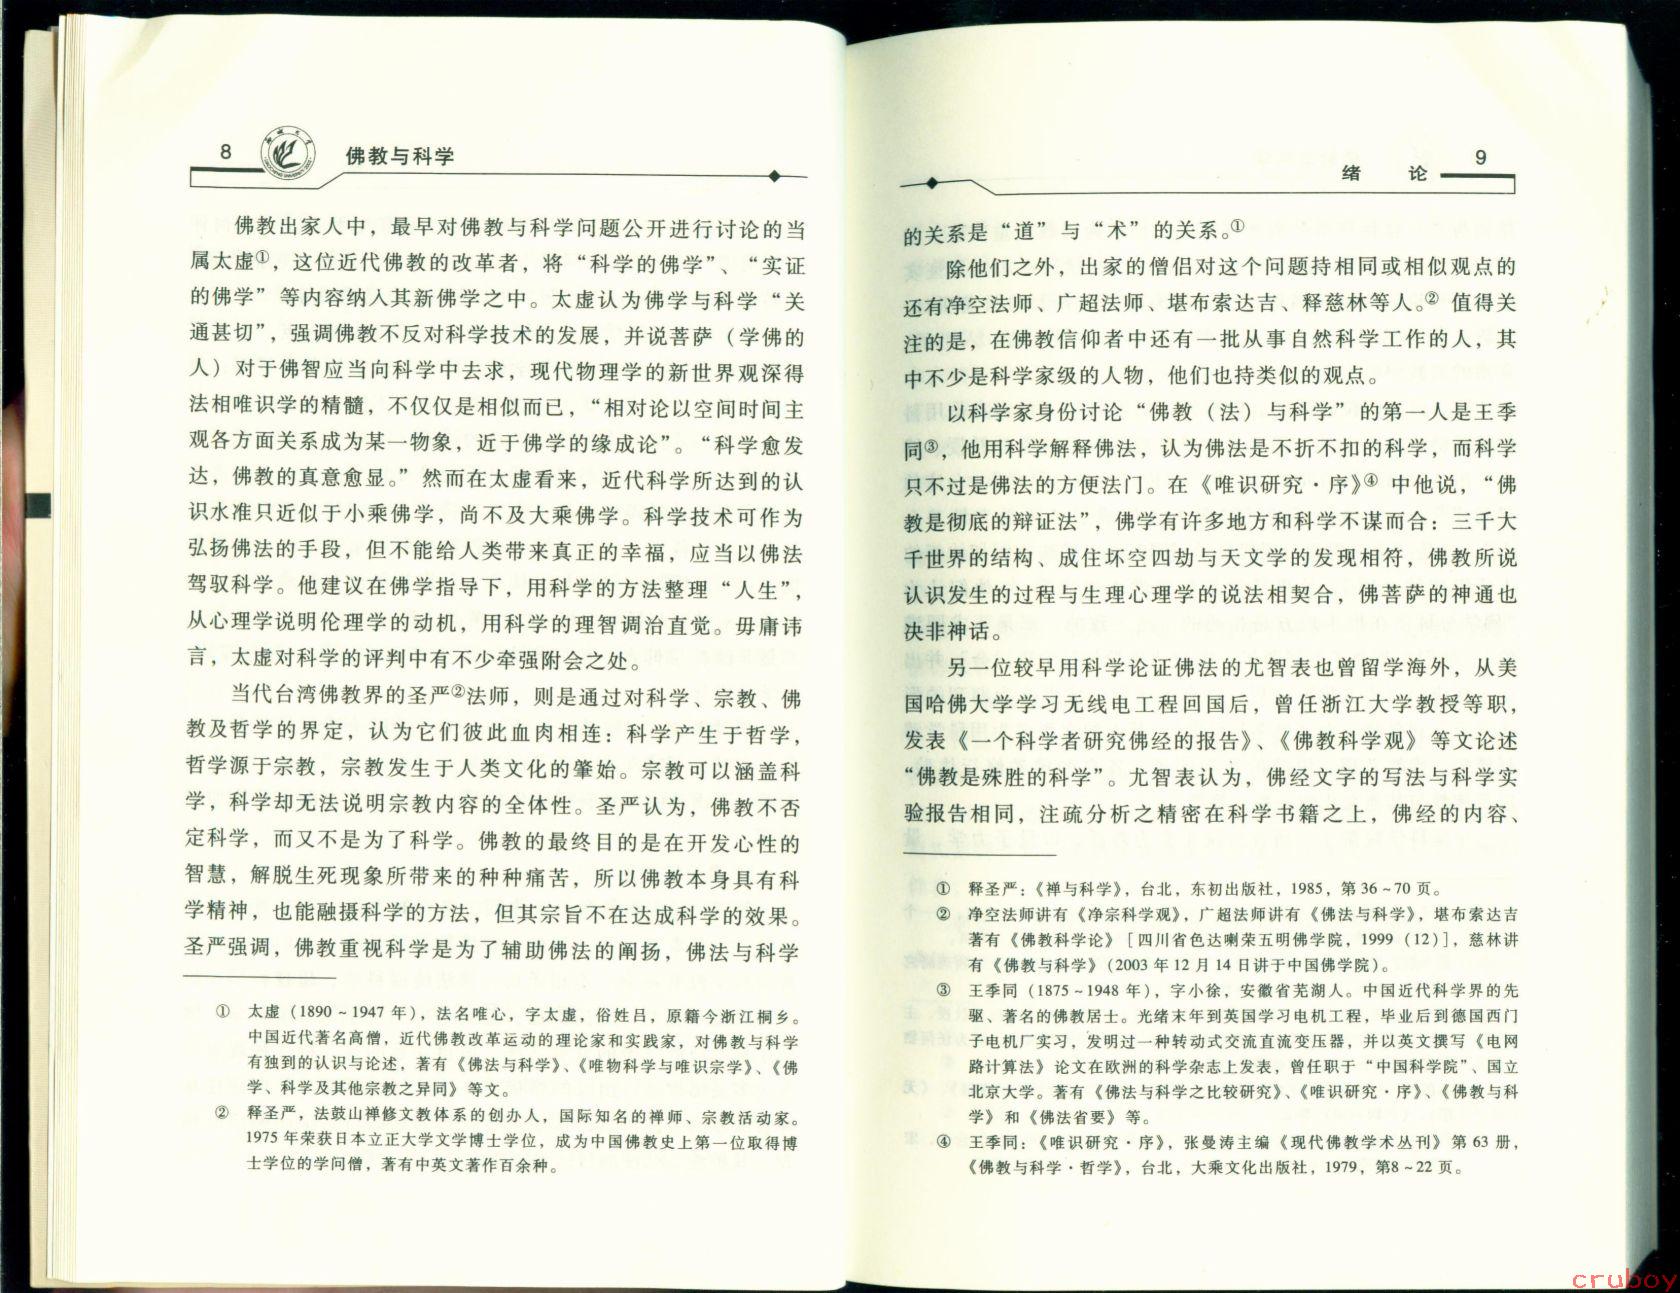 8
佛教与科学
佛教出家人中，最早对佛教与科学问题公开进行讨论的当
属太虚①，这位近代佛教的改革者，将“科学的佛学”、“实证
的佛学”等内容纳入其新佛学之中。太虚认为佛学与科学“关
通甚切”，强调佛教不反对科学技术的发展，并说菩萨（学佛的
人）对于佛智应当向科学中去求，现代物理学的新世界观深得
法相唯识学的精髓，不仅仅是相似而已，“相对论以空间时间主
观各方面关系成为某一物象，近于佛学的缘成论”。“科学愈发
达，佛教的真意愈显。”然而在太虚看来，近代科学所达到的认
识水准只近似于小乘佛学，尚不及大乘佛学。科学技术可作为
弘扬佛法的手段，但不能给人类带来真正的幸福，应当以佛法
驾驭科学。他建议在佛学指导下，用科学的方法整理“人生”，
从心理学说明伦理学的动机，用科学的理智调治直觉。毋庸讳
言，太虚对科学的评判中有不少牵强附会之处。
当代台湾佛教界的圣严②法师，则是通过对科学、宗教、佛
教及哲学的界定，认为它们彼此血肉相连：科学产生于哲学，
哲学源于宗教，宗教发生于人类文化的肇始。宗教可以涵盖科
学，科学却无法说明宗教内容的全体性。圣严认为，佛教不否
定科学，而又不是为了科学。佛教的最终目的是在开发心性的
智慧，解脱生死现象所带来的种种痛苦，所以佛教本身具有科
学精神，也能融摄科学的方法，但其宗旨不在达成科学的效果。
圣严强调，佛教重视科学是为了辅助佛法的阐扬，佛法与科学
① 太虚（1890～1947 年），法名唯心，字太虚，俗姓吕，原籍今浙江桐乡。
中国近代著名高僧，近代佛教改革运动的理论家和实践家，对佛教与科学
有独到的认识与论述，著有《佛法与科学》、《唯物科学与唯识宗学》、《佛
学、科学及其他宗教之异同》等文。
② 释圣严，法鼓山禅修文教体系的创办人，国际知名的禅师、宗教活动家。
1975 年荣获日本立正大学文学博士学位，成为中国佛教史上第一位取得博
士学位的学问僧，著有中英文著作百余种。
绪 论
9
的关系是“道”与“术”的关系。①
除他们之外，出家的僧侣对这个问题持相同或相似观点的
还有净空法师、广超法师、堪布索达吉、释慈林等人。② 值得关
注的是，在佛教信仰者中还有一批从事自然科学工作的人，其
中不少是科学家级的人物，他们也持类似的观点。
以科学家身份讨论“佛教（法）与科学”的第一人是王季
同③，他用科学解释佛法，认为佛法是不折不扣的科学，而科学
只不过是佛法的方便法门。在《唯识研究·序》④ 中他说，“佛
教是彻底的辩证法”，佛学有许多地方和科学不谋而合：三千大
千世界的结构、成住坏空四劫与天文学的发现相符，佛教所说
认识发生的过程与生理心理学的说法相契合，佛菩萨的神通也
决非神话。
另一位较早用科学论证佛法的尤智表也曾留学海外，从美
国哈佛大学学习无线电工程回国后，曾任浙江大学教授等职，
发表《一个科学者研究佛经的报告》、《佛教科学观》等文论述
“佛教是殊胜的科学”。尤智表认为，佛经文字的写法与科学实
验报告相同，注疏分析之精密在科学书籍之上，佛经的内容、
① 释圣严：《禅与科学》，台北，东初出版社，1985，第 36～70 页。
② 净空法师讲有《净宗科学观》，广超法师讲有《佛法与科学》，堪布索达吉
著有《佛教科学论》［四川省色达喇荣五明佛学院，1999（12）］，慈林讲
有《佛教与科学》（2003 年 12 月 14 日讲于中国佛学院）。
③ 王季同（1875～1948 年），字小徐，安徽省芜湖人。中国近代科学界的先
驱、著名的佛教居士。光绪末年到英国学习电机工程，毕业后到德国西门
子电机厂实习，发明过一种转动式交流直流变压器，并以英文撰写《电网
路计算法》论文在欧洲的科学杂志上发表，曾任职于“中国科学院”、国立
北京大学。著有《佛法与科学之比较研究》、《唯识研究·序》、《佛教与科
学》和《佛法省要》等。
④ 王季同：《唯识研究·序》，张曼涛主编《现代佛教学术丛刊》第 63 册，
《佛教与科学·哲学》，台北，大乘文化出版社，1979，第8～22 页。
cruboy